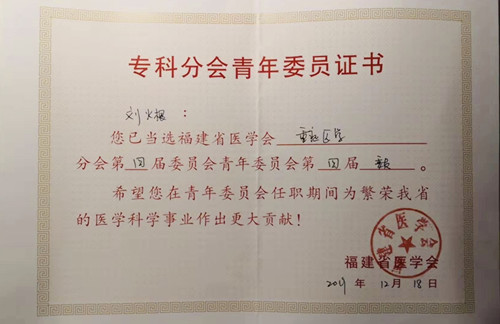 专科分会青年委员证书
刘火:
您已当选福建省医学会 重症医学
分会第 四 届委员会青年委员会第 四 届 委员 。
希望您在青年委员会任职期间为繁荣我省
的医学科学事业作出更大贡献!
福建省医学会
福建省医学会
年 12 月 18 日